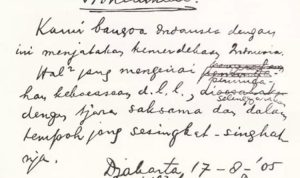 Proklamasi.
Kami bangsa Indonesia dengan
ini menjatakan kemerdekaan Indonesia.
Hal² jang mengenai
kekoeasaan d.l.l., diselenggarakan
dengan tjara saksama dan dalam
tempoh jang sesingkat-singkat
nja.
Djakarta 17-8-'05